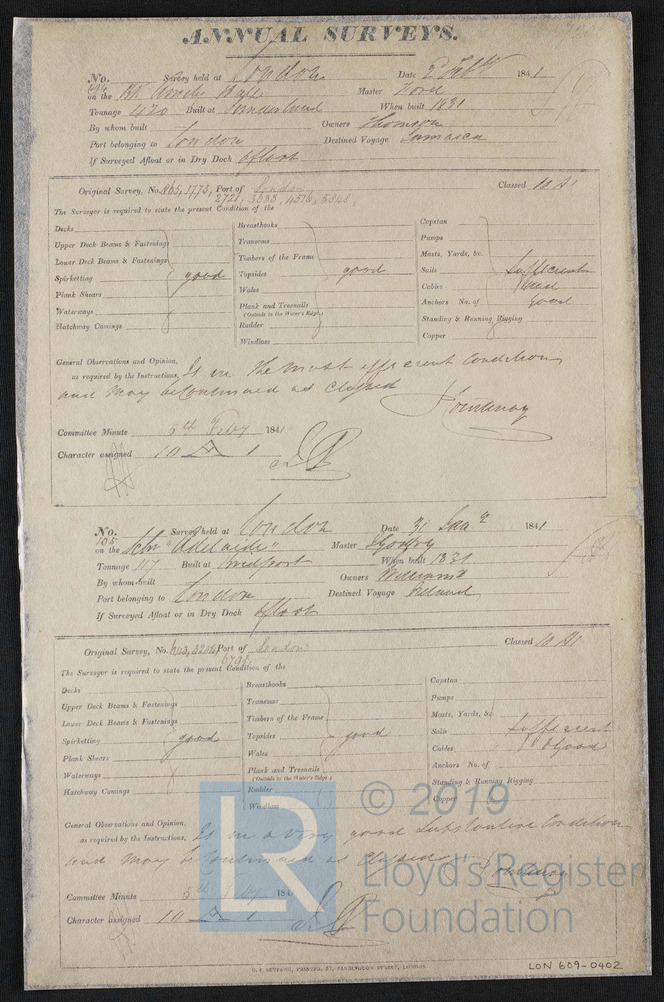 ANNUAL SURVEYS.
No. Survey held at London Date 2 Feby 1841
on the Bk Wales Master
Tonnage 420 Built at Sunderland When built 1831
By whom built Owners Thomson
Port belonging to London Destined Voyage Jamaica
If Surveyed Afloat or in Dry Dock afloat
Original Survey, No. 865, 1773, Port of London Classed 10 A1
2721, 3688, 4516,
The Surveyor is required to state the present Condition of the
Decks
Upper Deck Beams & Fastenings
Lower Deck Beams & Fastenings
Spirketting good
Plank Shears
Waterways
Hatchway Comings
Breasthooks
Transoms
Timbers of the Frame
Topsides good
Wales
Plank and Treenails
(Outside to the Water's Edge.)
Rudder
Windlass
Capstan
Pumps
Masts, Yards, &c.
Sails sufficient
Cables
Anchors No. of good
Standing & Running Rigging
Copper
General Observations and Opinion, Is in the most efficient condition
as required by the Instructions,
and may be Continued as Classed
Committee Minute 5th Feby 1841
Character assigned 10 A 1
No. Survey held at London Date 30 Jan 1841
105
on the Schr "Adelaide" Master Godfrey
Tonnage 107 Built at Bridport When built 1831
By whom built Owners Williams
Port belonging to London Destined Voyage
If Surveyed Afloat or in Dry Dock afloat
Original Survey, No. Port of London Classed 10 A1
The Surveyor is required to state the present Condition of the
Decks
Upper Deck Beams & Fastenings
Lower Deck Beams & Fastenings
Spirketting good
Plank Shears
Waterways
Hatchway Comings
Breasthooks
Transoms
Timbers of the Frame
Topsides good
Wales
Plank and Treenails
(Outside to the Water's Edge.)
Rudder
Windlass
Capstan
Pumps
Masts, Yards, &c.
Sails sufficient
Cables & good
Anchors No. of
Standing & Running Rigging
Copper
General Observations and Opinion, Is in a very good Substantive Condition
as required by the Instructions,
and may be Continued as Classed
Committee Minute 5th Feby 184
Character assigned 10 A 1
LR
© 2019
Lloyd's Register
Foundation
LON 609-0402